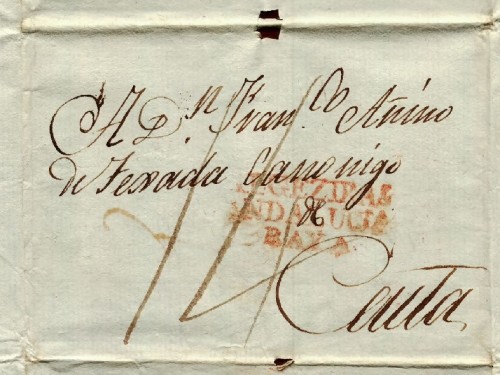 A D.n Fran.co Añino
de Texada Canonigo
de
Ceuta
ALGEZIRAS
ANDALUCIA
BAXA